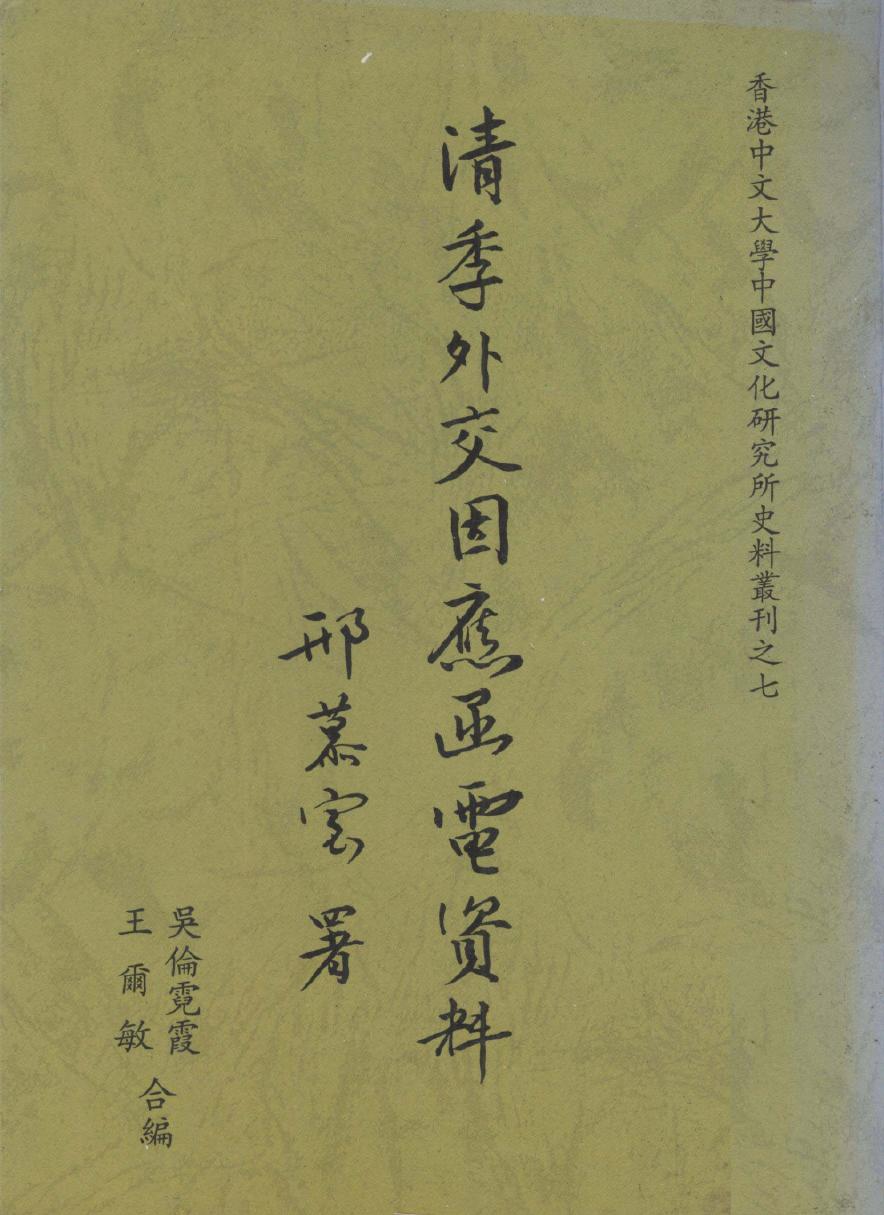 香港中文大學中國文化研究所史料叢刊之七
清季外交因應函電資料
邢慕寰署
吳倫霓霞
王爾敏
合編